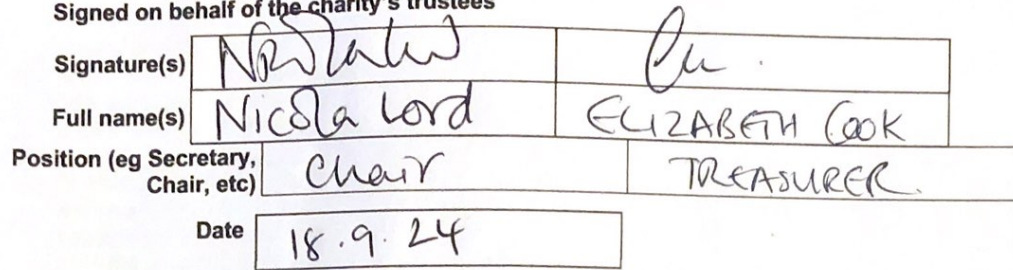 Signed on behalf of the charity's trustees
Signature(s)
Full name(s) Nicola Lord ELIZABETH COOK
Position (eg Secretary, Chair TREASURER.
Chair, etc)
Date 18.9.24